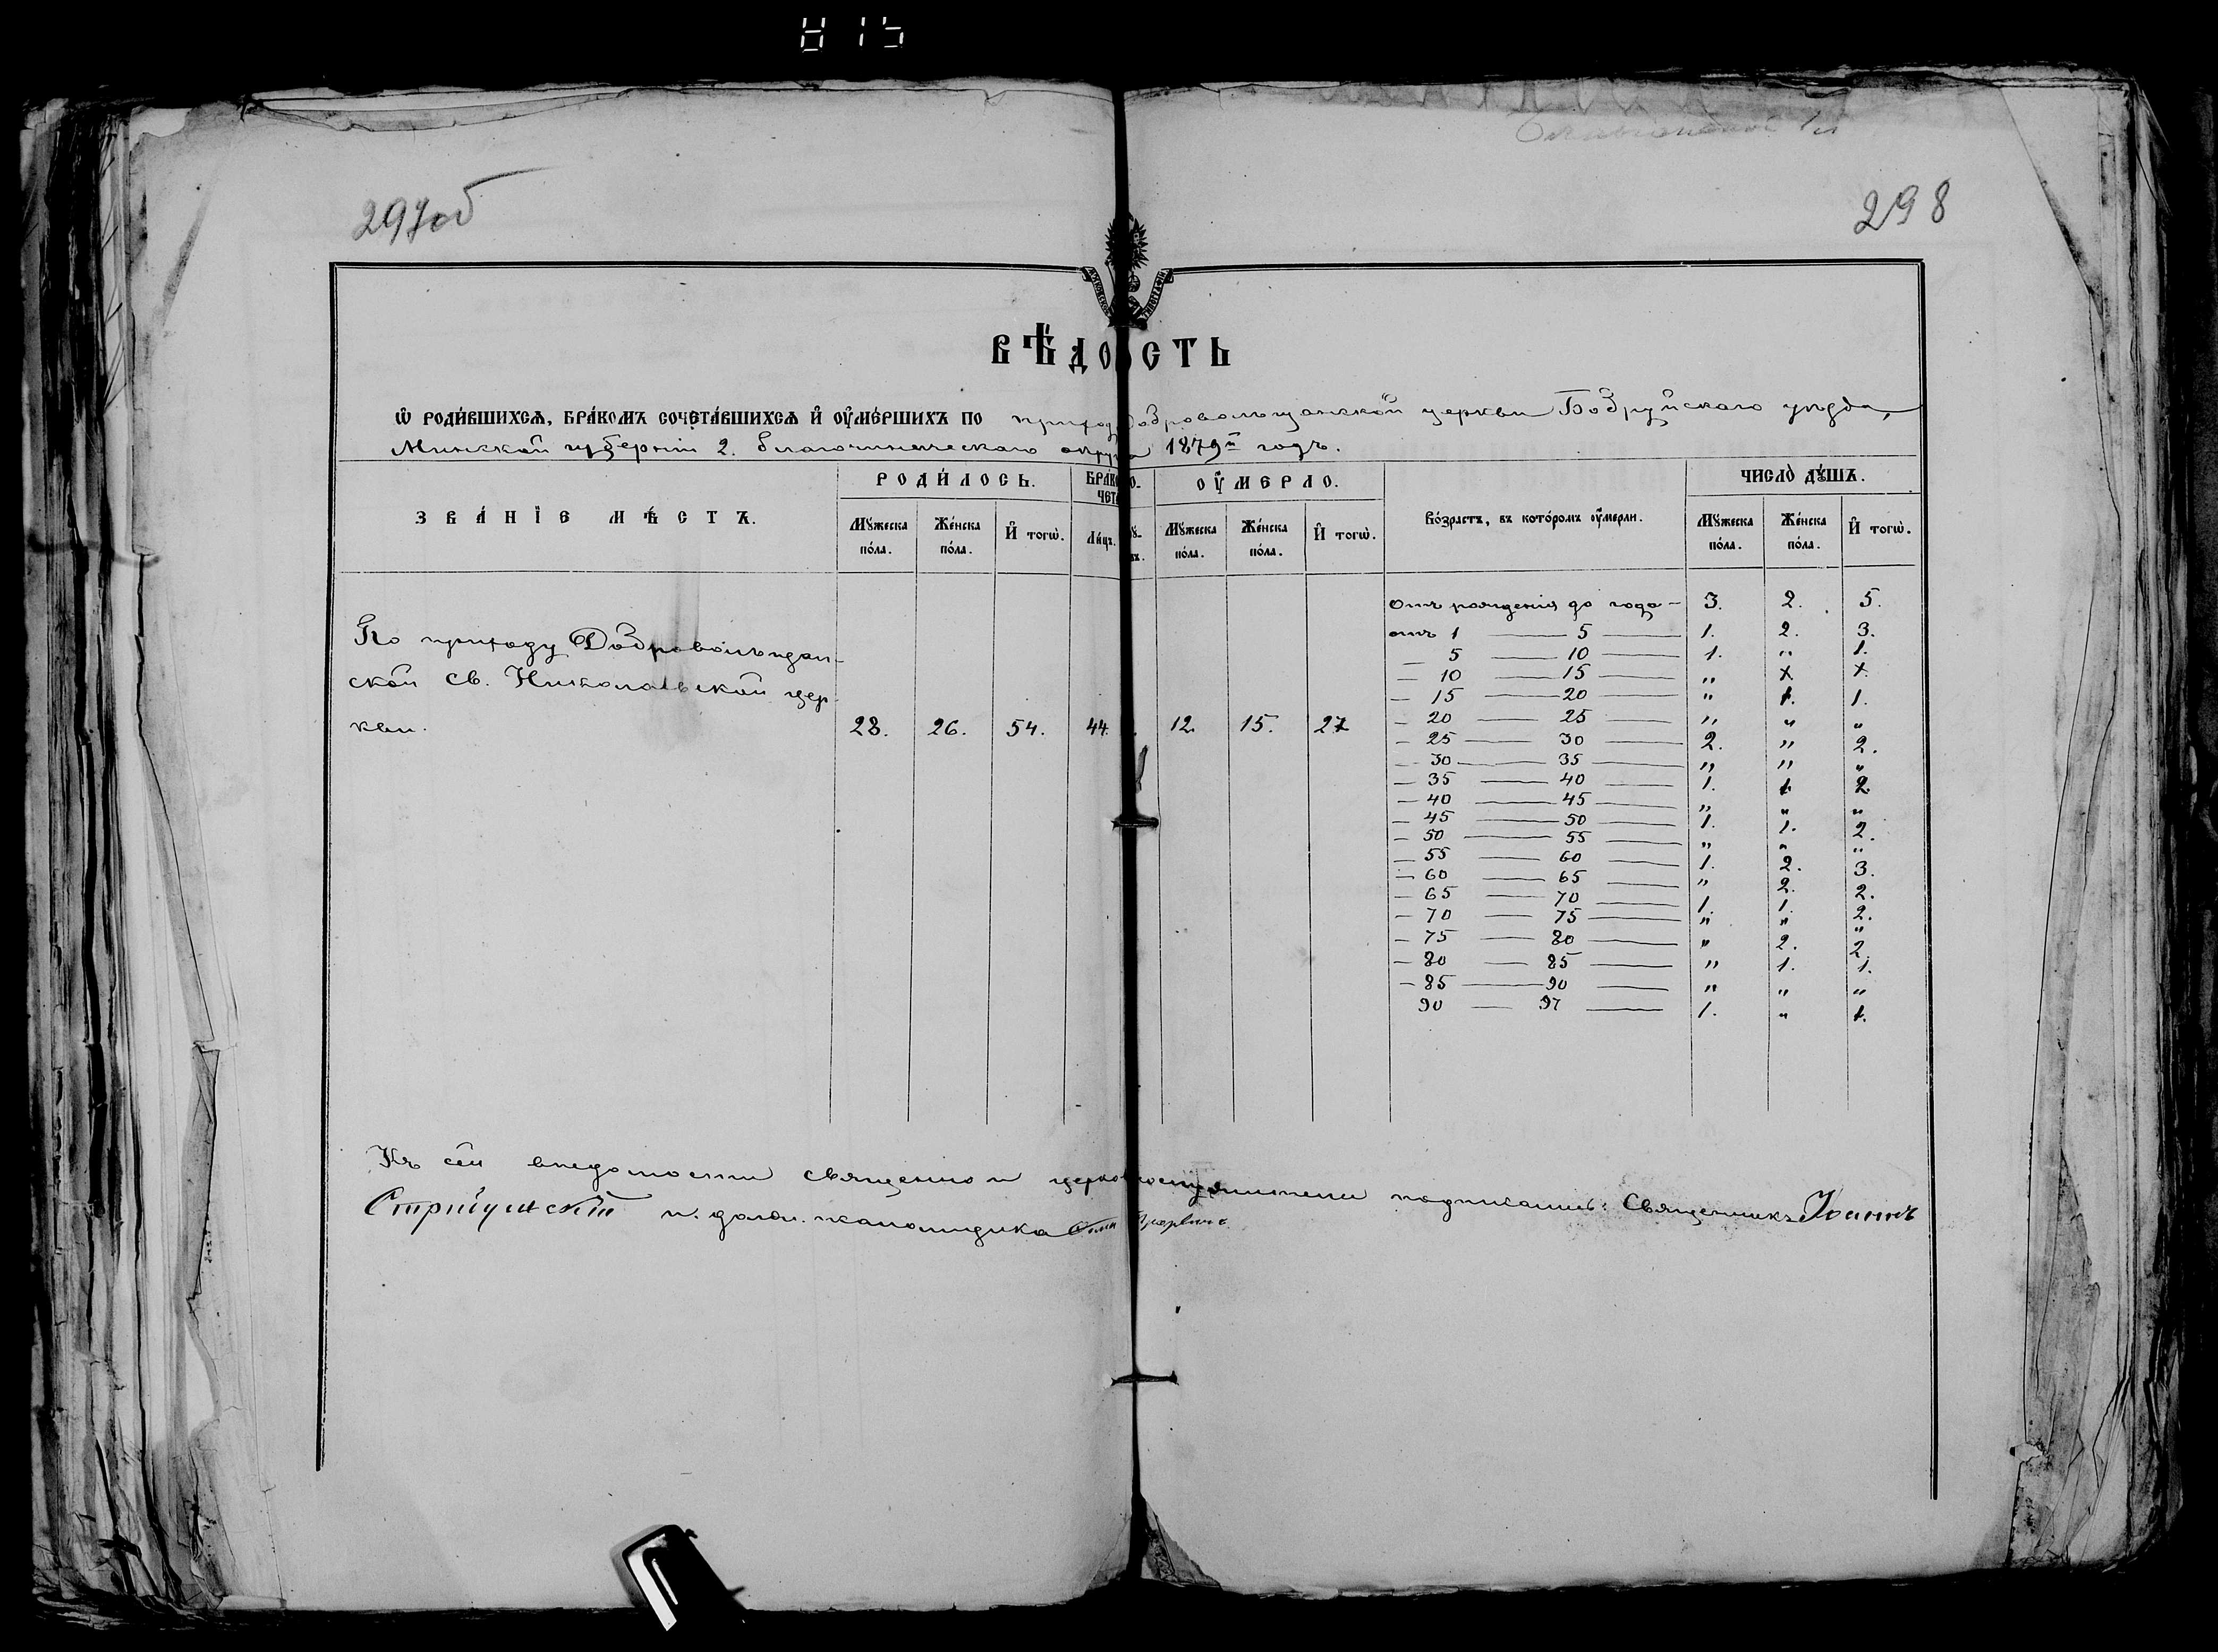 297об
298
ВѢДО СТЬ
Ѡ РОДИ́ВШИХСѦ, БРА́КОМЪ СОЧЕТА́ВШИХСѦ И҆ ОУ҆МЕ́РШИХЪ ПО приход Добровольщанской церкви Бобруйскаго уѣзда,
Минской губерніи 2. благочинническаго округа 1879й годъ.
ЗВА́НІЕ МѢ́СТЪ.
РОДИ́ЛОСЬ.
БРАКО О-
ЧЕТА
ОУ҆МЕРЛО.
Во́зрастъ, въ кото́ромъ оу҆́мерли.
ЧИСЛО̀ ДꙊ́ШЪ.
Мꙋ́жеска по́ла.
Же́нска по́ла.
И҆ тогѡ̀.
Ли́цъ.
Мꙋ́жеска по́ла.
Же́нска по́ла.
И҆ тогѡ̀.
Мꙋ́жеска по́ла.
Же́нска по́ла.
И҆ тогѡ̀.
По приходу Добровольщан-
ской св. Николаевской цер-
кви. 28. 26. 54. 44. 12. 15. 27
отъ рожденія до года — 3. 2. 5.
отъ 1 — 5 — 1. 2. 3.
— 5 — 10 — 1. „ 1.
— 10 — 15 — „ X X
— 15 — 20 — „ 1. 1.
— 20 — 25 — „ „ „
— 25 — 30 — 2. „ 2.
— 30 — 35 — „ „ „
— 35 — 40 — 1. 1. 2
— 40 — 45 — „ „ „
— 45 — 50 — 1. 1. 2.
— 50 — 55 — „ „ „
— 55 — 60 — 1. 2. 3.
— 60 — 65 — „ 2. 2.
— 65 — 70 — 1. 1. 2.
— 70 — 75 — „ „ „
— 75 — 80 — „ 2. 2.
— 80 — 85 — „ 1. 1.
— 85 — 90 — „ „ „
90 — 97 — 1. „ 1.
Къ сей вѣдомости священно и церковнослужители подписались: Священникъ Іоаннъ
и. долж. псаломщика